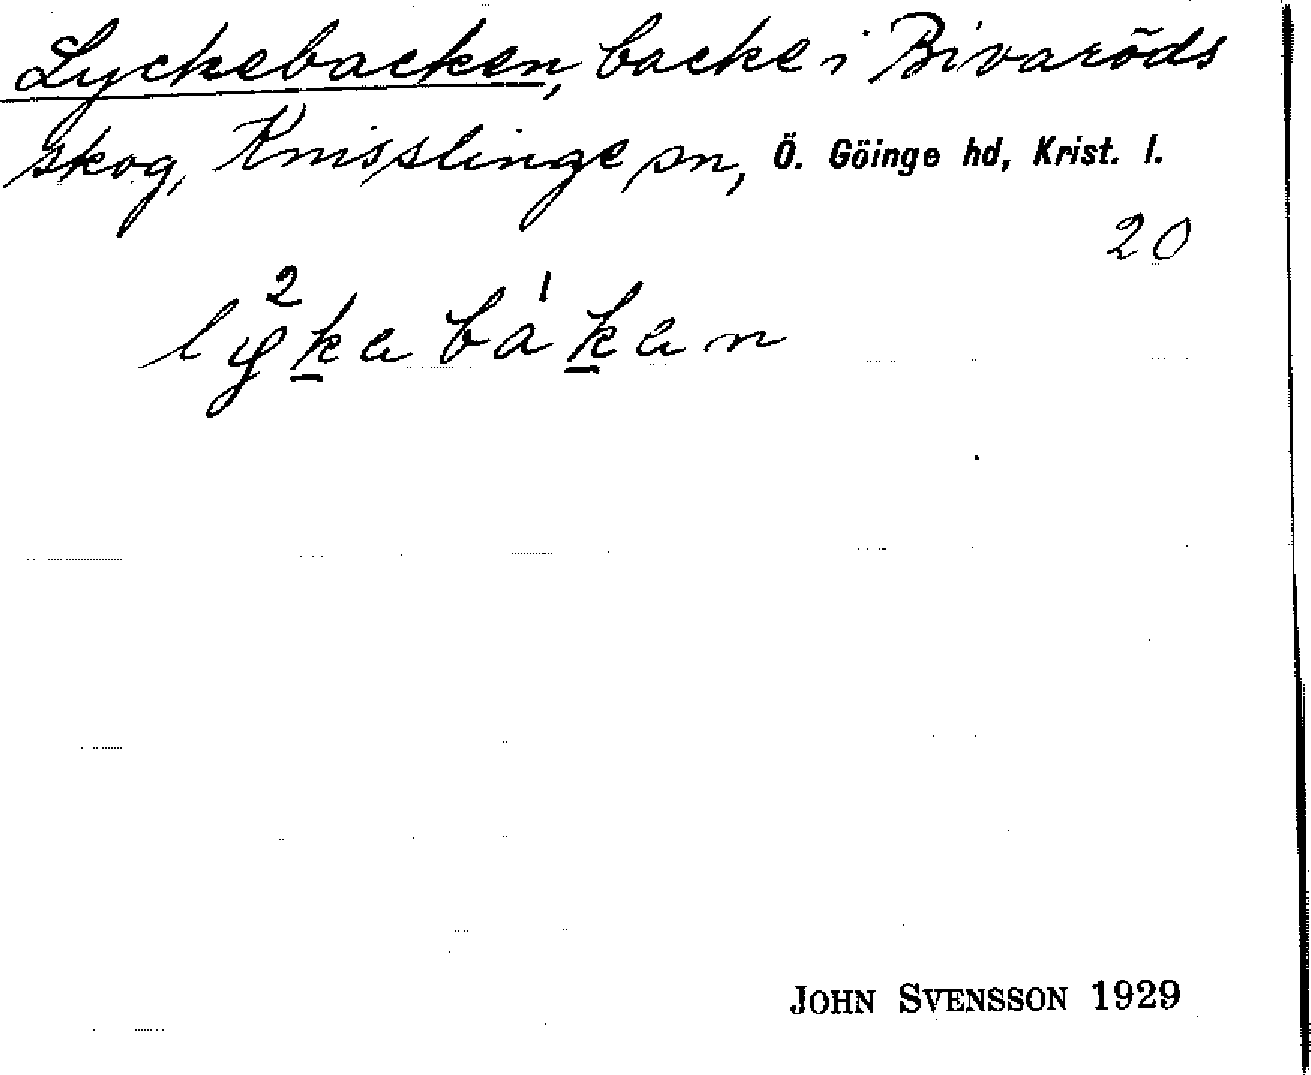 Lyckebacken, backe i Bivaröds
skog, Knisslinge sn, Ö. Göinge hd, Krist. l.
20
ly²kabá¹kan
JOHN SVENSSON 1929